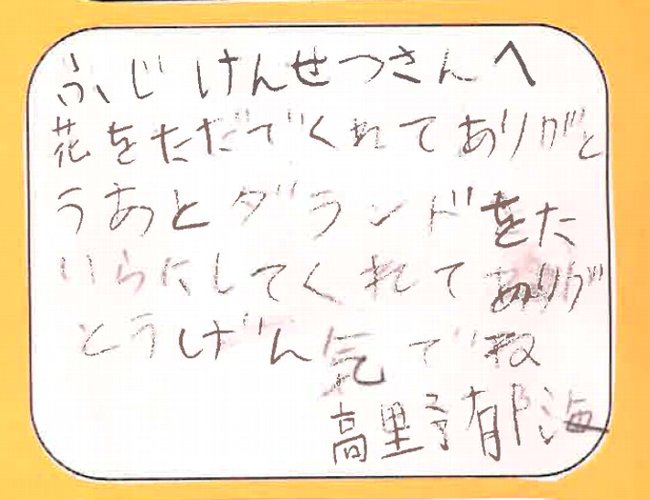 ふじけんせつさんへ
花をただでくれてありがと
うあとグランドをた
いらにしてくれてありが
とうげん気でね
高野郁海